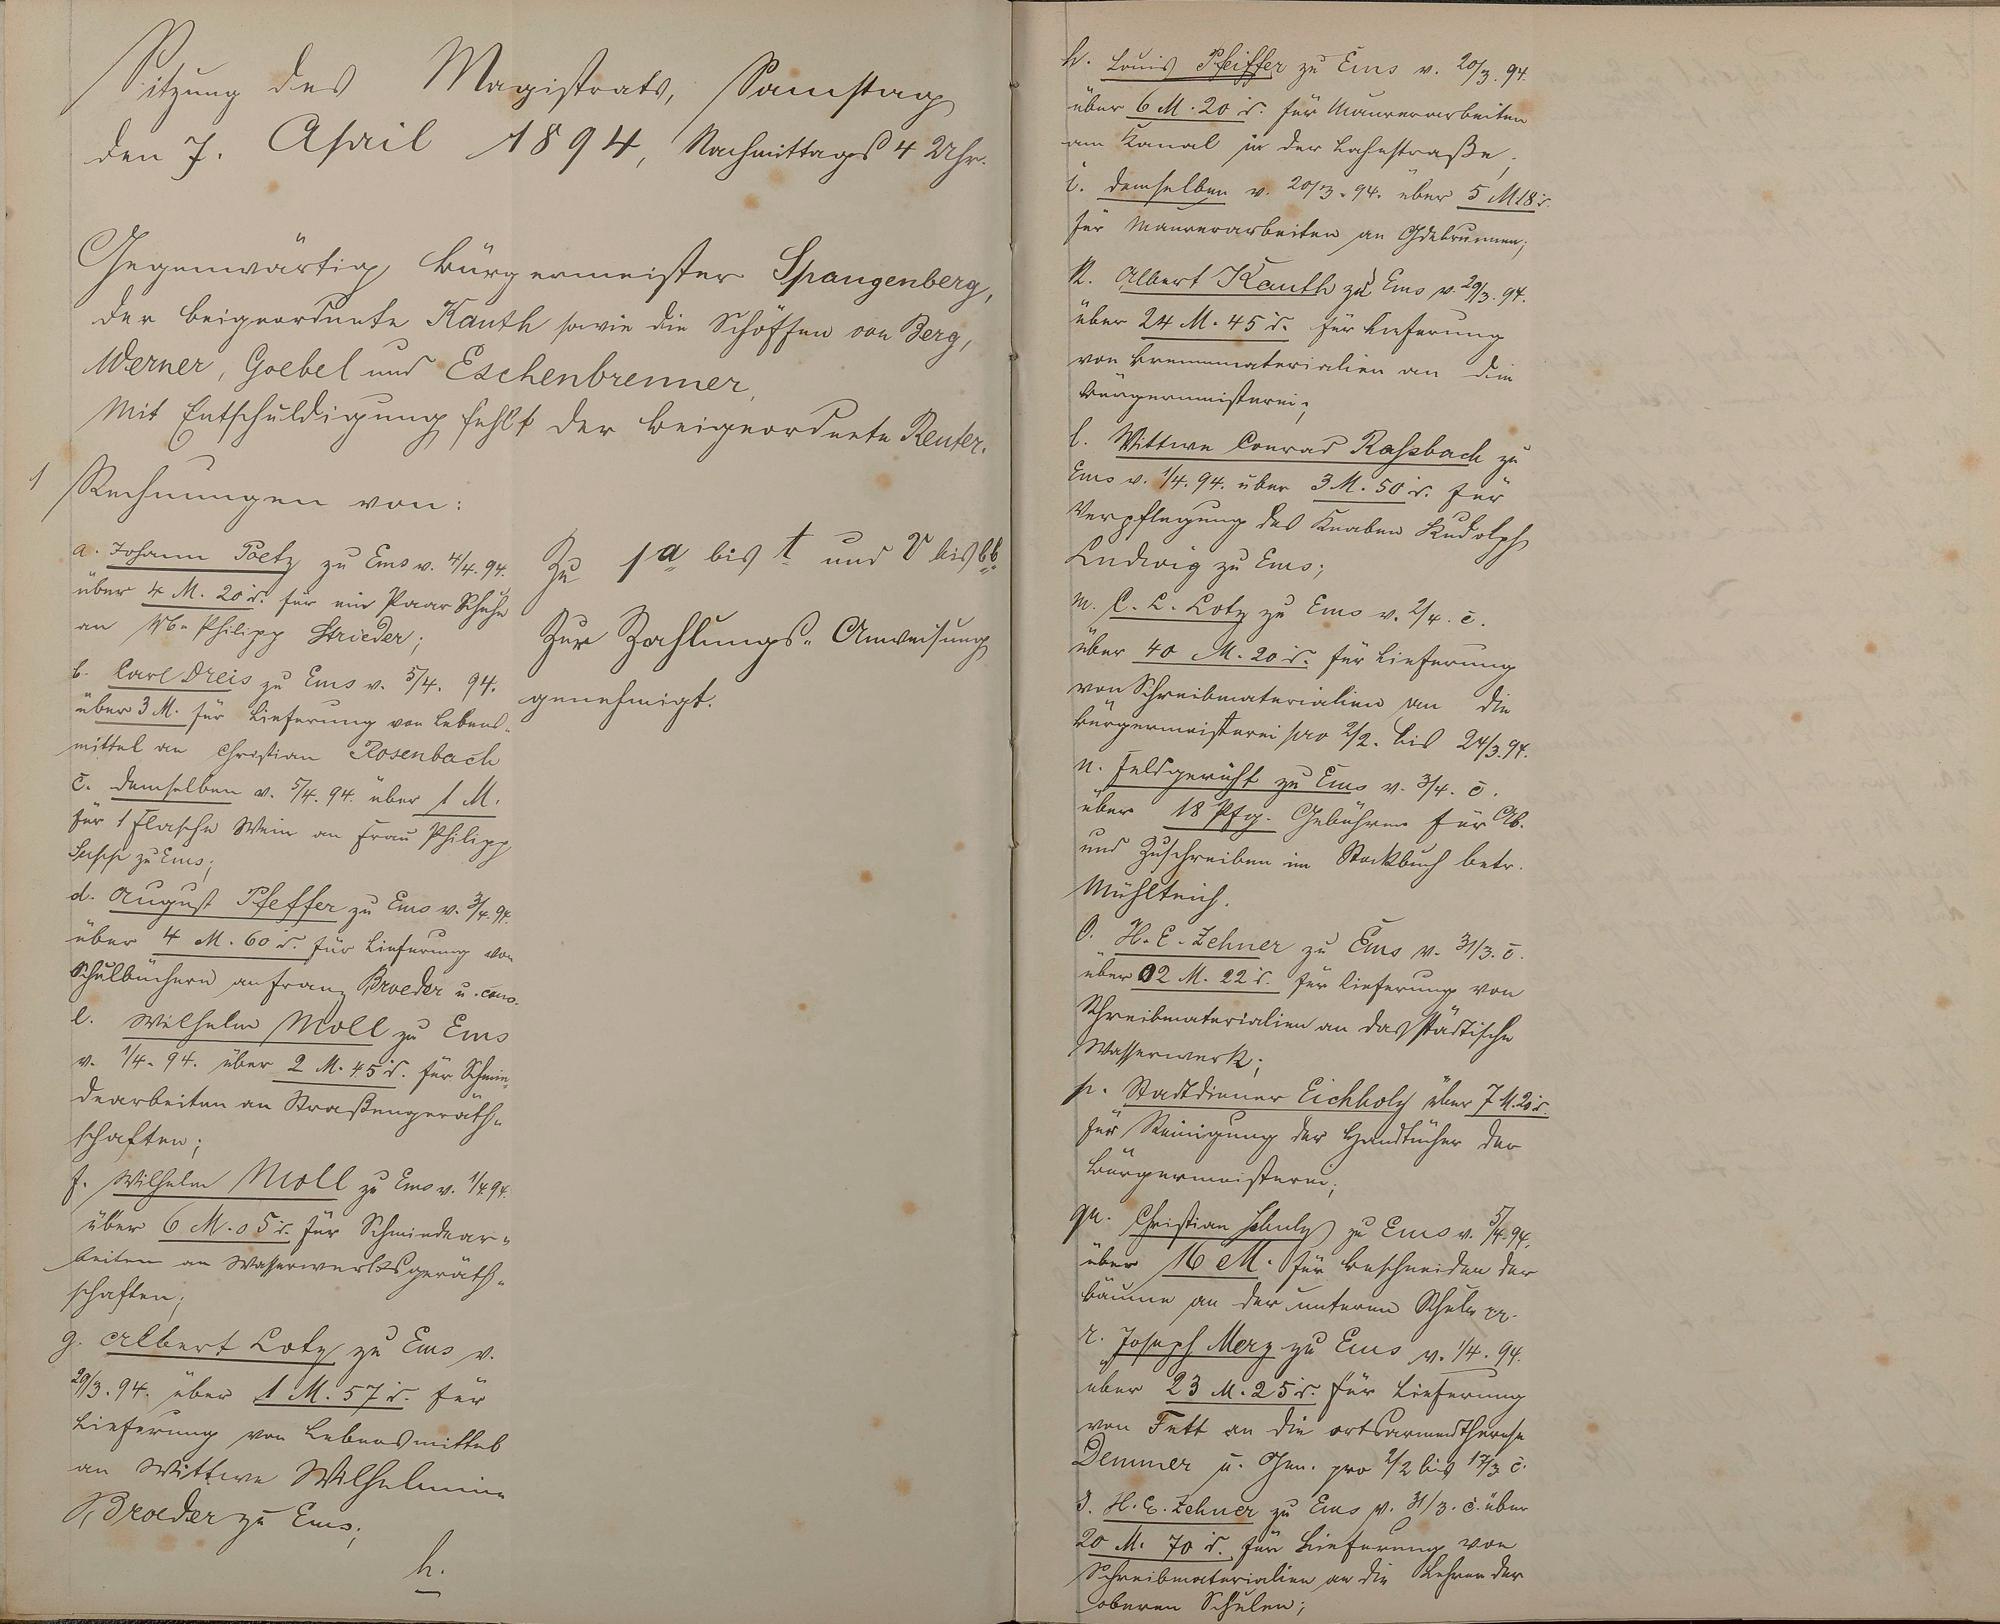 Sitzung des Magistrats, Samstag
den 7. April 1894, Nachmittags 4 Uhr.
Gegenwärtig Bürgermeister Spangenberg,
der Beigeordnete Kauth sowie die Schöffen von Berg,
Werner, Goebel und Eschenbrenner,
Mit Entschuldigung fehlt der Beigeordnete Reuter.
1 Rechnungen von:
a. Johann Poetz zu Ems v. 4/4. 94.
über 4 M. 20 d. für ein Paar Schuhe
an Philipp Strieder;
b. Carl Dreis zu Ems v. 5/4. 94.
über 3 M. für Lieferung von Lebens-
mittel an Christian Rosenbach
c. demselben v. 5/4. 94. über 1 M.
für 1 Flasche Wein an Frau Philipp
zu Ems;
d. August Pfeffer zu Ems v. 3/4. 94.
über 4 M. 60 d. für Lieferung von
Schulbüchern an Franz Broeder u. cons.
e. Wilhelm Moll zu Ems
v. 1/4. 94. über 2 M. 45 d. für Schmie-
dearbeiten an Straßengeräth-
schaften;
f. Wilhelm Moll zu Ems v. 1/4 94.
über 6 M. 05 d. für Schmiedear-
beiten an Wasserwerksgeräth-
schaften;
g. Albert Lotz zu Ems v.
29/3. 94. über 1 M. 57 d. für
Lieferung von Lebensmittel
an Wittwe Wilhelmine
Broeder zu Ems;
h.
Zu 1a bis t und v bis bb
Zur Zahlungs-Anweisung
genehmigt.
h. Louis Pfeiffer zu Ems v. 20/3. 94.
über 6 M. 20 d. für Maurerarbeiten
am Kanal in der Lahnstraße;
i. demselben v. 20/3. 94. über 5 M 18 d.
für Maurerarbeiten an Gdebrunnen;
k. Albert Kauth zu Ems v. 29/3. 94.
über 24 M. 45 d. für Lieferung
von Brennmaterialien an die
Bürgermeisterei;
l. Wittwe Conrad Rassbach zu
Ems v. 1/4. 94. über 3 M. 50 d. für
Verpflegung des Knaben Rudolph
Ludwig zu Ems;
m. C. L. Lotz zu Ems v. 2/4. c.
über 40 M. 20 d. für Lieferung
von Schreibmaterialien an die
Bürgermeisterei pro 2/2. bis 24/3. 94.
n. Feldgericht zu Ems v. 3/4. c.
über 18 Pfg. Gebühren für Ab-
und Zuschreiben im Stockbuch betr.
Mühlteich.
o. H. E. Zehner zu Ems v. 31/3. c.
über 2 M. 22 d. für Lieferung von
Schreibmaterialien an das städtische
Wasserwerk;
p. Stadtdiener Eichholz über 7 M. 20 d.
für Reinigung der Handtücher der
Bürgermeisterei;
qu. Christian Schulz zu Ems v. 5/4. 94.
über 16 M. für Beschneiden der
Bäume an der unteren Schule pp.
r. Joseph Merz zu Ems v. 1/4. 94.
über 23 M. 25 d. für Lieferung
von Fett an die ortsarme Therese
Demmer u. Gen. pro 2/2 bis 17/3 c.
s. H. E. Zehner zu Ems v. 31/3. c. über
20 M. 70 d. für Lieferung von
Schreibmaterialien an die Lehrer der
oberen Schulen;